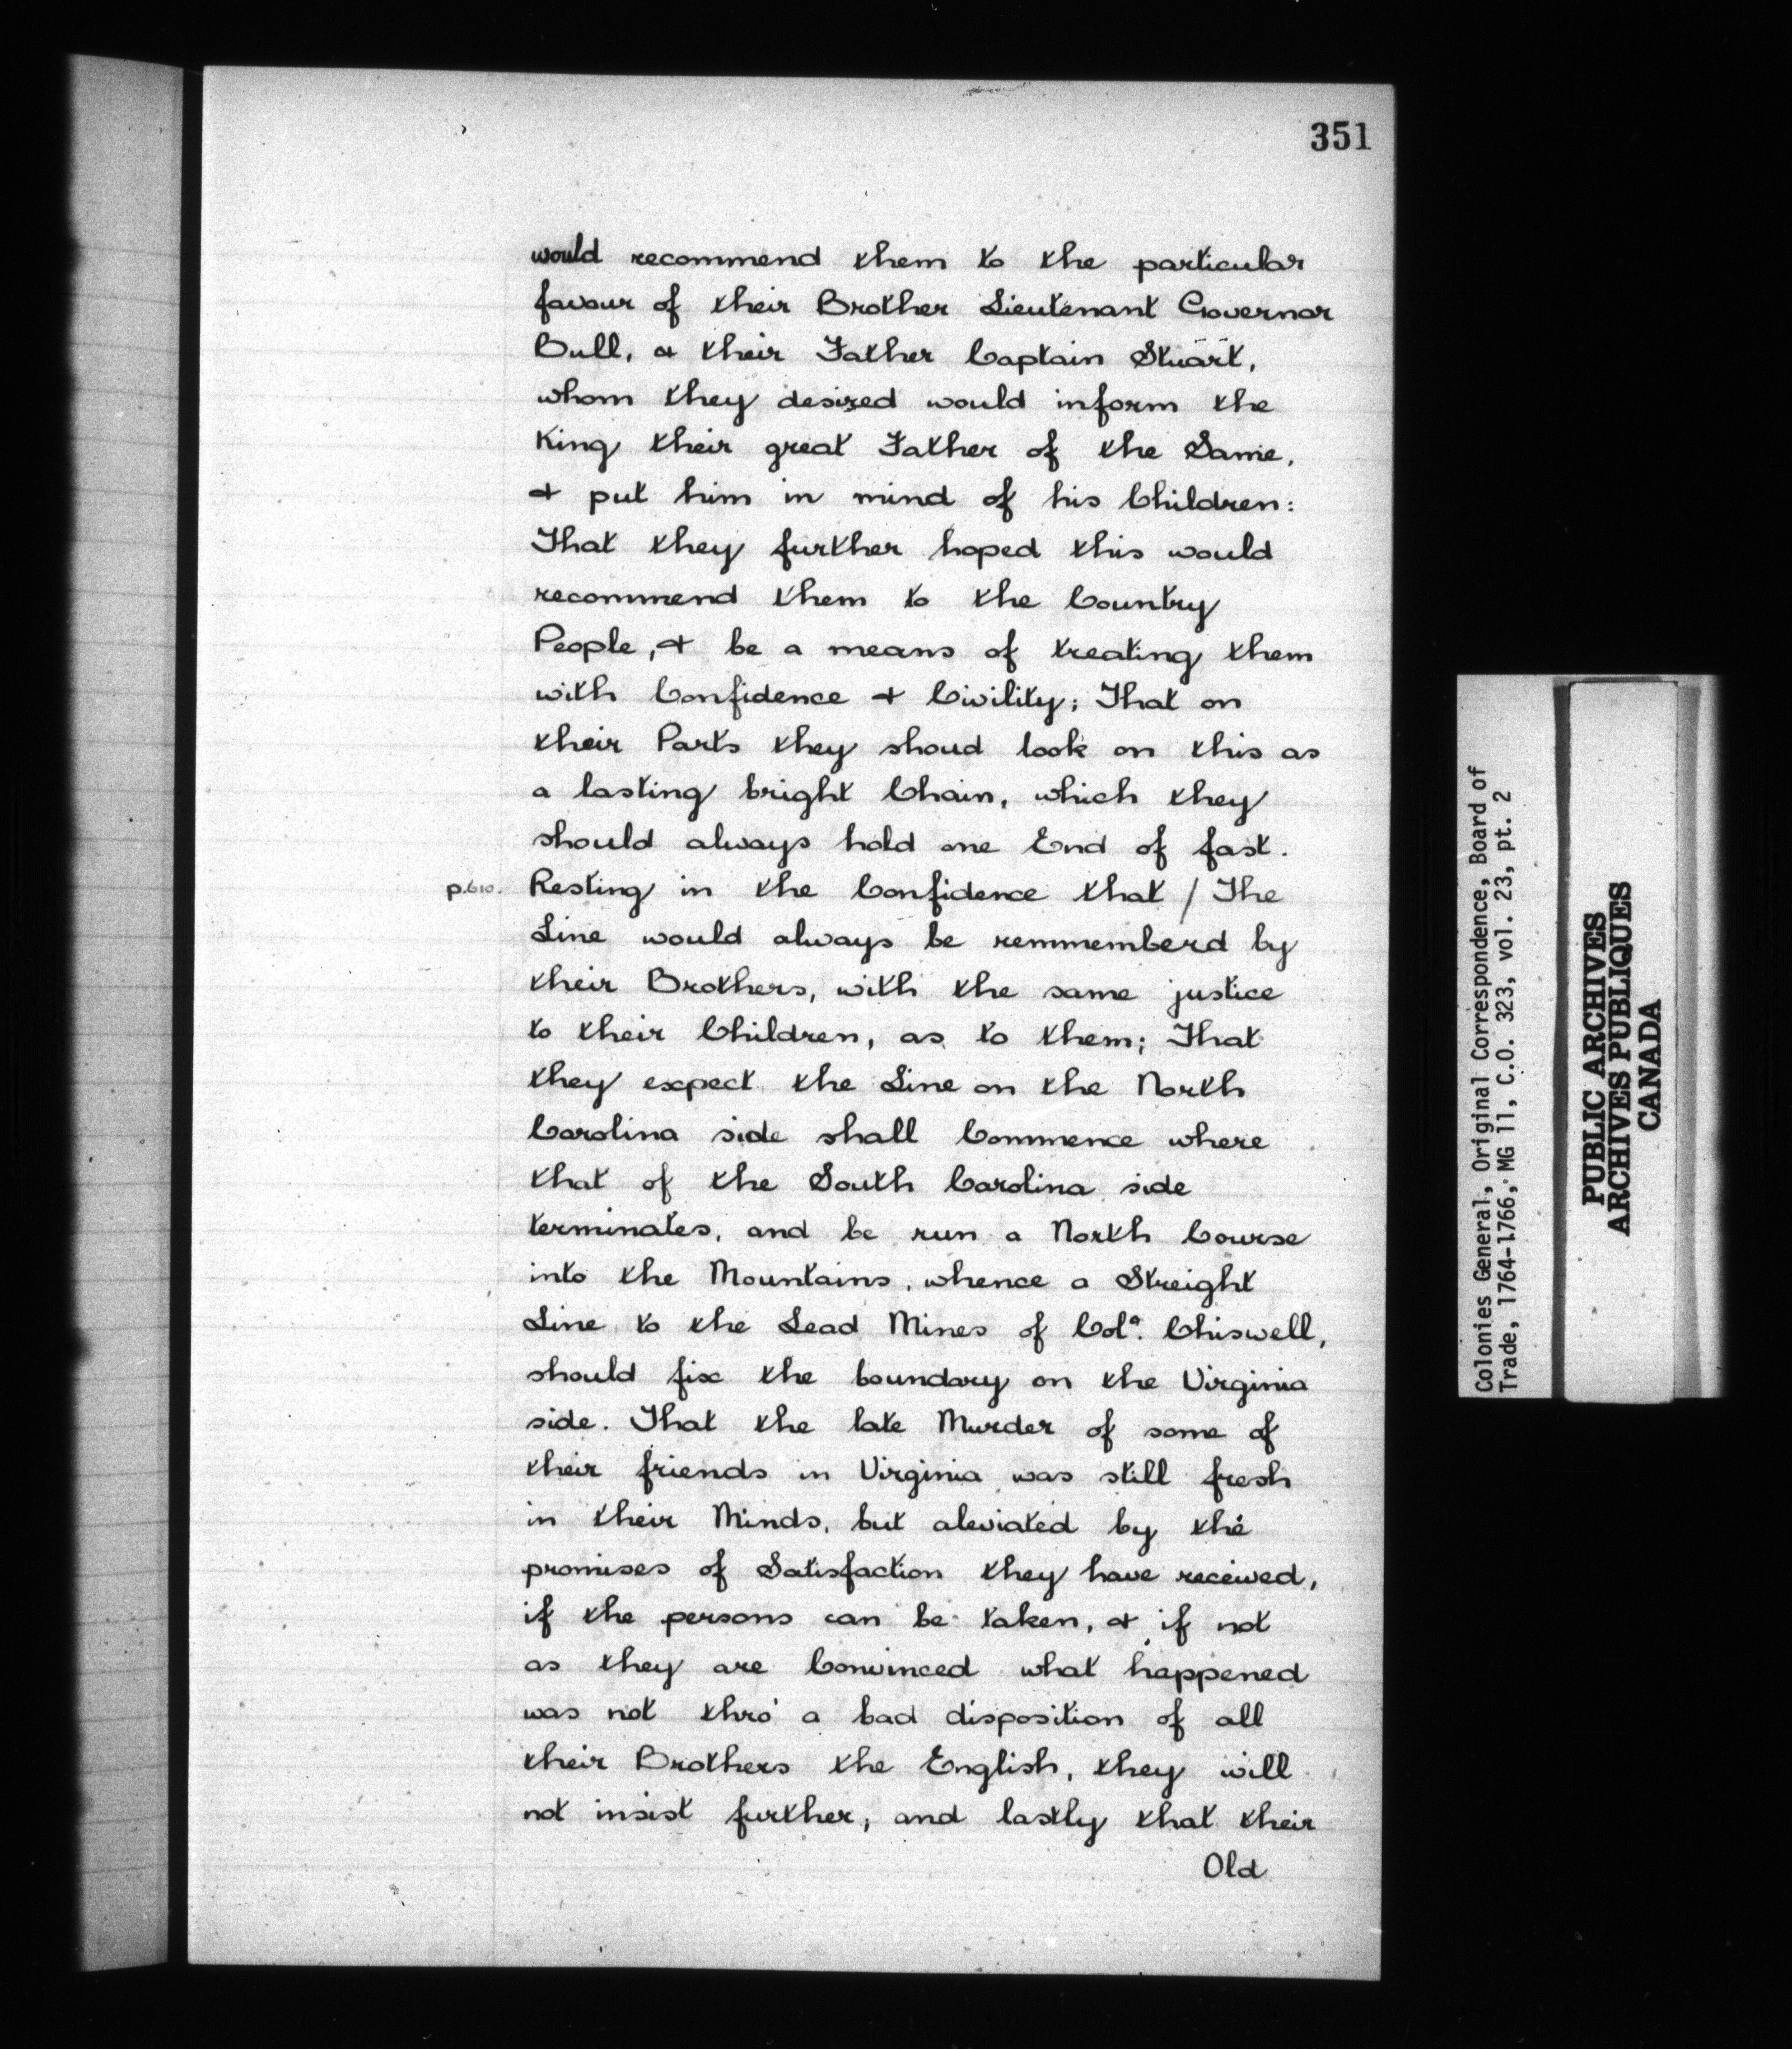 351
would recommend them to the particular
favour of their Brother Lieutenant Governor
Bull, & their Father Captain Stuart,
whom they desired would inform the
King their great Father of the Same,
& put him in mind of his Children:
That they further hoped this would
recommend them to the Country
People, & be a means of treating them
with Confidence & Civility; That on
their Parts they shoud look on this as
a lasting bright Chain, which they
should always hold one End of fast.
p.610. Resting in the Confidence that / The
Line would always be remmemberd by
their Brothers, with the same justice
to their Children, as to them; That
they expect the Line on the North
Carolina side shall Commence where
that of the South Carolina side
terminates, and be run a North Course
into the Mountains, whence a Streight
Line to the Lead Mines of Colº. Chiswell,
should fix the boundary on the Virginia
side. That the late Murder of some of
their friends in Virginia was still fresh
in their Minds, but aleviated by the
promises of Satisfaction they have received,
if the persons can be taken, & if not
as they are Convinced what happened
was not thro' a bad disposition of all
their Brothers the English, they will
not insist further; and lastly that their
Old
Colonies General, Original Correspondence, Board of
Trade, 1764-1766, MG 11, C.O. 323, vol. 23, pt. 2
PUBLIC ARCHIVES
ARCHIVES PUBLIQUES
CANADA